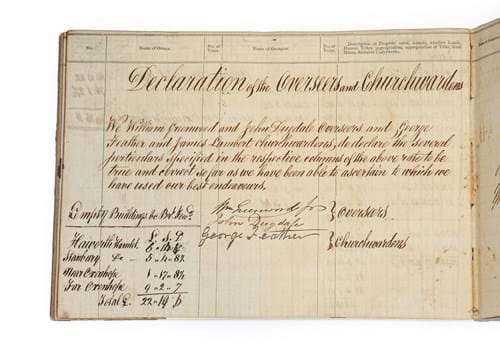 No.
Name of Owner.
No. of
Name of Occupier.
No. of
Description of Property rated, namely, whether Lands,
Declaration of the Overseers and Churchwardens
We William Greenwood and John Dugdale Overseers and George
Feather and James Lambert Churchwardens, do declare the several
particulars specified in the respective columns of the above rate to be
true and correct so far as we have been able to ascertain to which we
have used our best endeavours.
Wm Greenwood Jnr
John Dugdale } Overseers.
George Feather } Churchwardens
Empty Buildings be
£ S D
Haworth Hamlet
Stanbury Do 5 - 4 - 8½
Near Oxenhope 1 - 17 - 8½
Far Oxenhope 9 - 2 - 7
Total £ 22 - 19